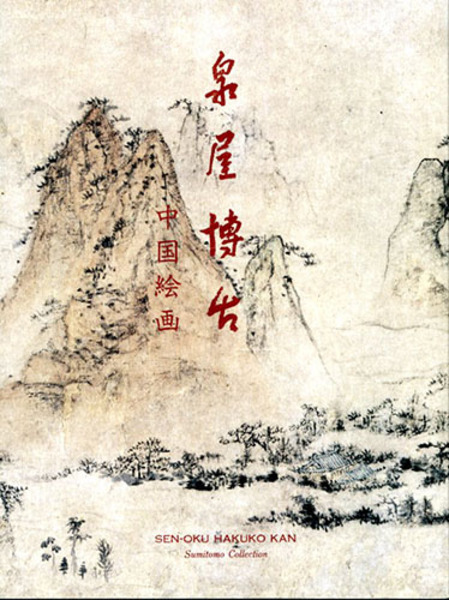 泉屋博古
中国絵画
SEN-OKU HAKUKO KAN
Sumitomo Collection